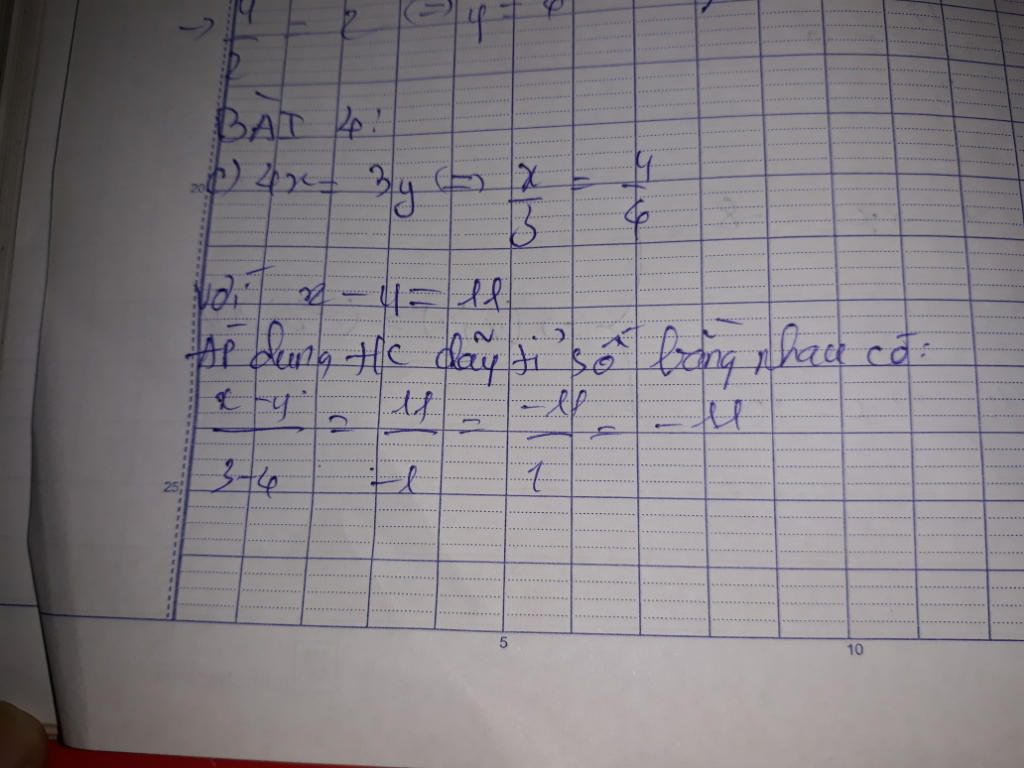 → y/2 = 2 (=> y =
BÀI 4:
20 c) 4x = 3y (=> x/3 = y/4
với x - y = 11
ÁP dụng t/c dãy tỉ số bằng nhau có:
x-y/3-4 = 11/-1 = -11/1 = -11
25
5 10